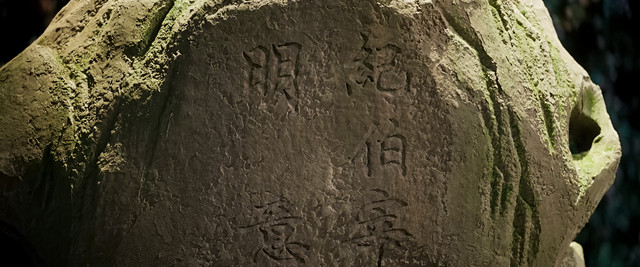 紀伯宰
明意